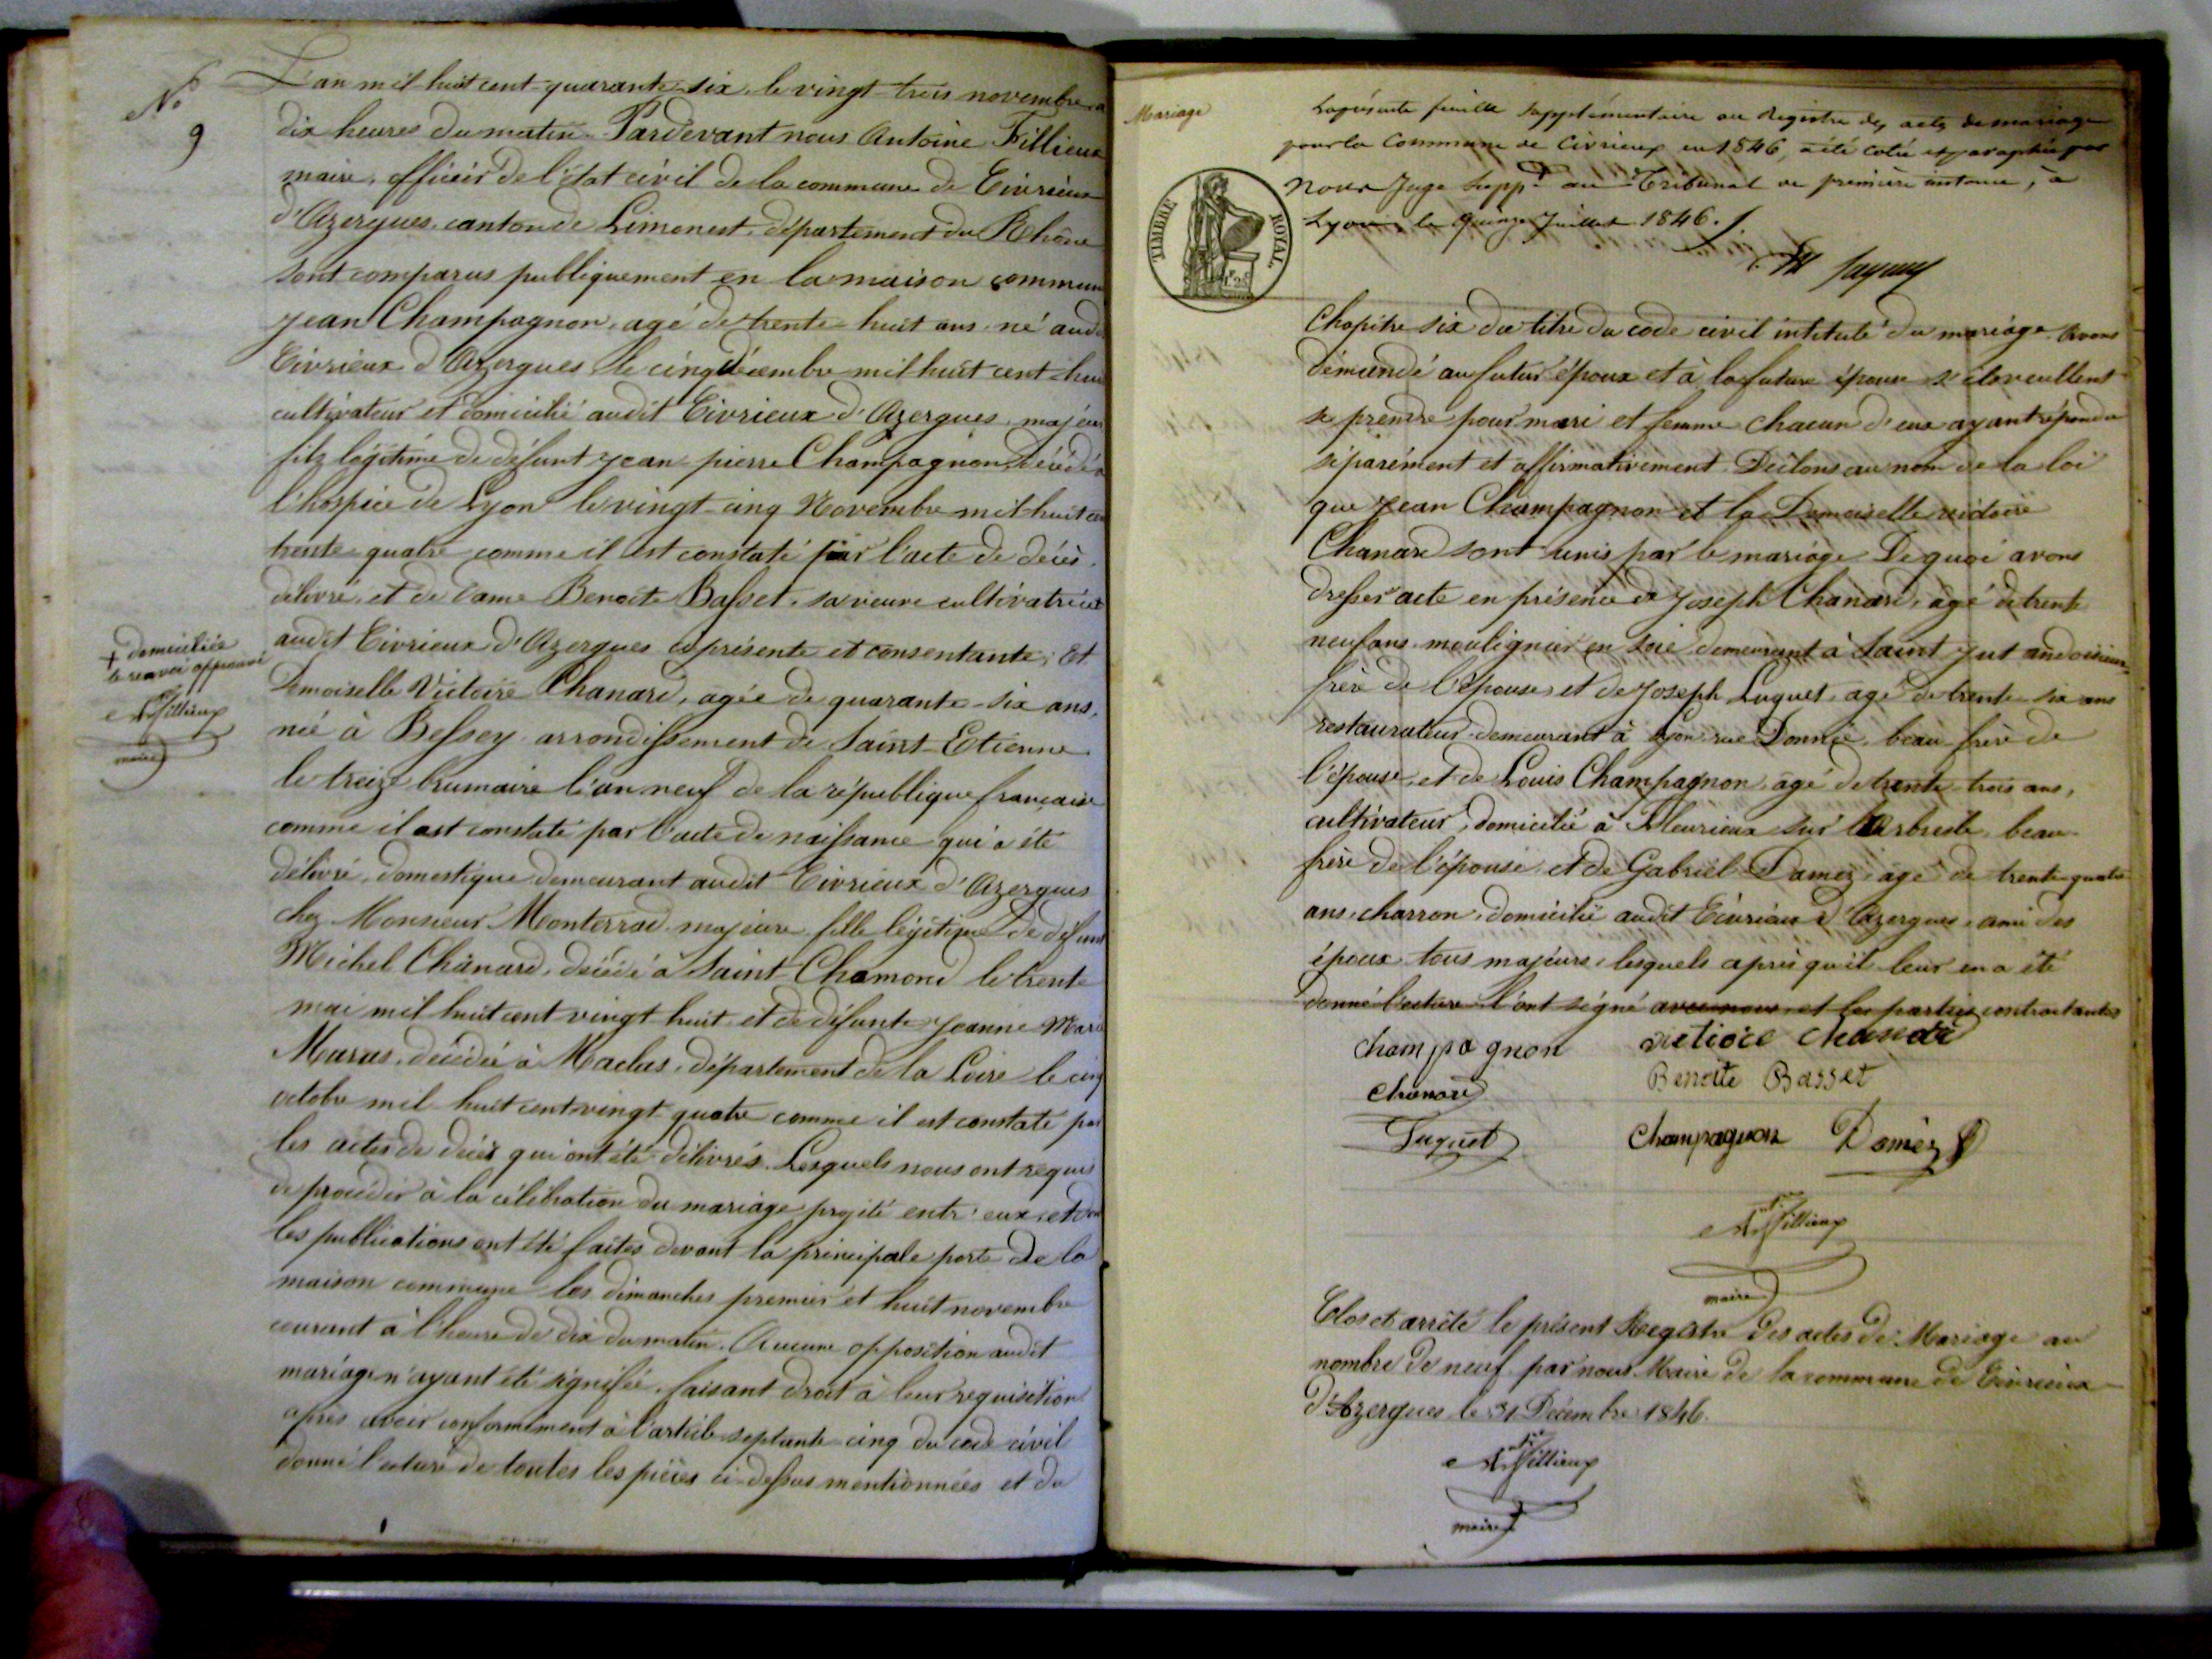 N°
9
L'an mil huit cent quarante-six le vingt-trois novembre a
dix heures du matin Pardevant nous Antoine Fillieux
maire, officier de l'état civil de la commune de Civrieux
d'Azergues, canton de Limonest, département du Rhône
sont comparus publiquement en la maison commun
Jean Champagnon, agé de trente-huit ans né aud
Civrieux d'Azergues le cinq décembre mil huit cent-hui
cultivateur et domicilié audit Civrieux d'Azergues, majeur
fils légitime de défunt jean pierre Champagnon décédé a
l'hospice de Lyon le vingt-cinq Novembre mil huit cen
trente-quatre comme il est constaté par l'acte de décès
délivré, et de Dame Benoite Basset, sa veuve cultivatrice
+ domiciliée
le renvoi approuvé
A. Fillieux
maire
audit Civrieux d'Azergues présente et consentante; Et
Demoiselle Victoire Chanard, agée de quarante-six ans,
née à Bessey arrondissement de Saint-Etienne
le treize brumaire l'an neuf de la république française
comme il est constaté par l'acte de naissance qui a été
délivré, domestique demeurant audit Civrieux d'Azergues
chez Monsieur Monterrad majeure fille légitime de défunt
Michel Chanard, décédé à Saint-Chamond le trente
mai mil huit cent vingt-huit et de défunte Jeanne Marie
Maras, décédée à Maclas, département de la Loire le cinq
octobre mil huit cent vingt-quatre comme il est constaté par
les actes de décès qui ont été délivrés. Lesquels nous ont requis
de procéder à la célébration du mariage projeté entr'eux, et don
les publications ont été faites devant la principale porte de la
maison commune les dimanches premier et huit novembre
courant à l'heure de dix du matin. Aucune opposition audit
mariage n'ayant été signifiée, faisant droit à leur requisition
après avoir conformément à l'article septante-cinq du code civil
donné lecture de toutes les pièces ci-dessus mentionnées et du
Mariage
La présente feuille supplémentaire au Registre des actes de mariage
pour la Commune de Civrieux en 1846, a été cotée et paraphée par
Nous Juge Supp.t au Tribunal de première instance, à
Lyon, le quinze Juillet 1846.
TIMBRE ROYAL
Chapitre six du titre du code civil intitulé du mariage. Avons
démandé au futur époux et à la future épouse s'ils veullent
se prendre pour mari et femme chacun d'eux ayant répondu
séparément et affirmativement Déclons au nom de la loi
que Jean Champagnon et la Demoiselle victoire
Chanard sont unis par le mariage De quoi avons
dresser acte en présence de Joseph Chanard, agé de trente
neuf ans, moulignier en soie demeurant à Saint just
frère de l'épouse, et de Joseph Luquet, agé de trente-six ans
restaurateur demeurant à Lyon rue Donnée, beau frère de
l'épouse, et de Louis Champagnon, agé de trente-trois ans,
cultivateur, domicilié à Fleurieux sur l'Arbresle, beau
frère de l'épouse, et de Gabriel Damez, agé de trente-quatre
ans, charron, domicilié audit Civrieux d'Azergues, ami des
époux tous majeurs, lesquels après qu'il leur en a été
donné lecture l'ont signé avec nous et les parties contractantes
Champagnon victoire Chanard
Chanard Benoite Basset
Luquet Champagnon Damez
A. Fillieux
maire
Clos et arrêté le présent Registre des actes de Mariage au
nombre de neuf par nous Maire de la commune de Civrieux
d'Azergues le 31 Décembre 1846.
A. Fillieux
maire